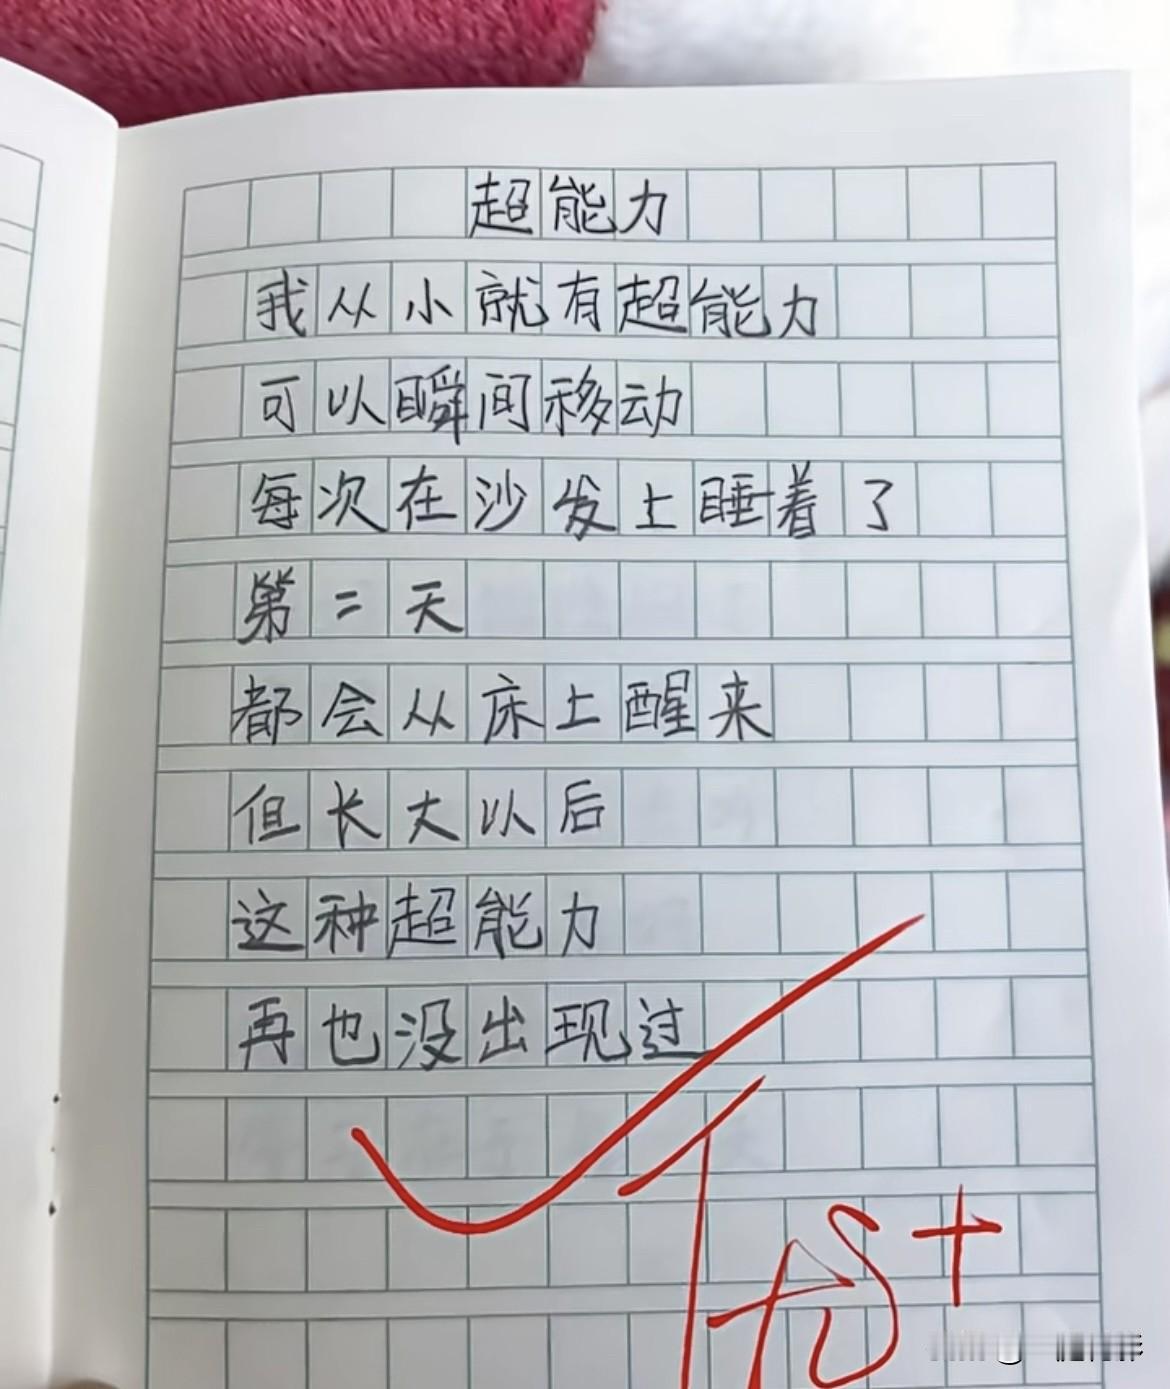 超能力
我从小就有超能力
可以瞬间移动
每次在沙发上睡着了
第二天
都会从床上醒来
但长大以后
这种超能力
再也没出现过
优+